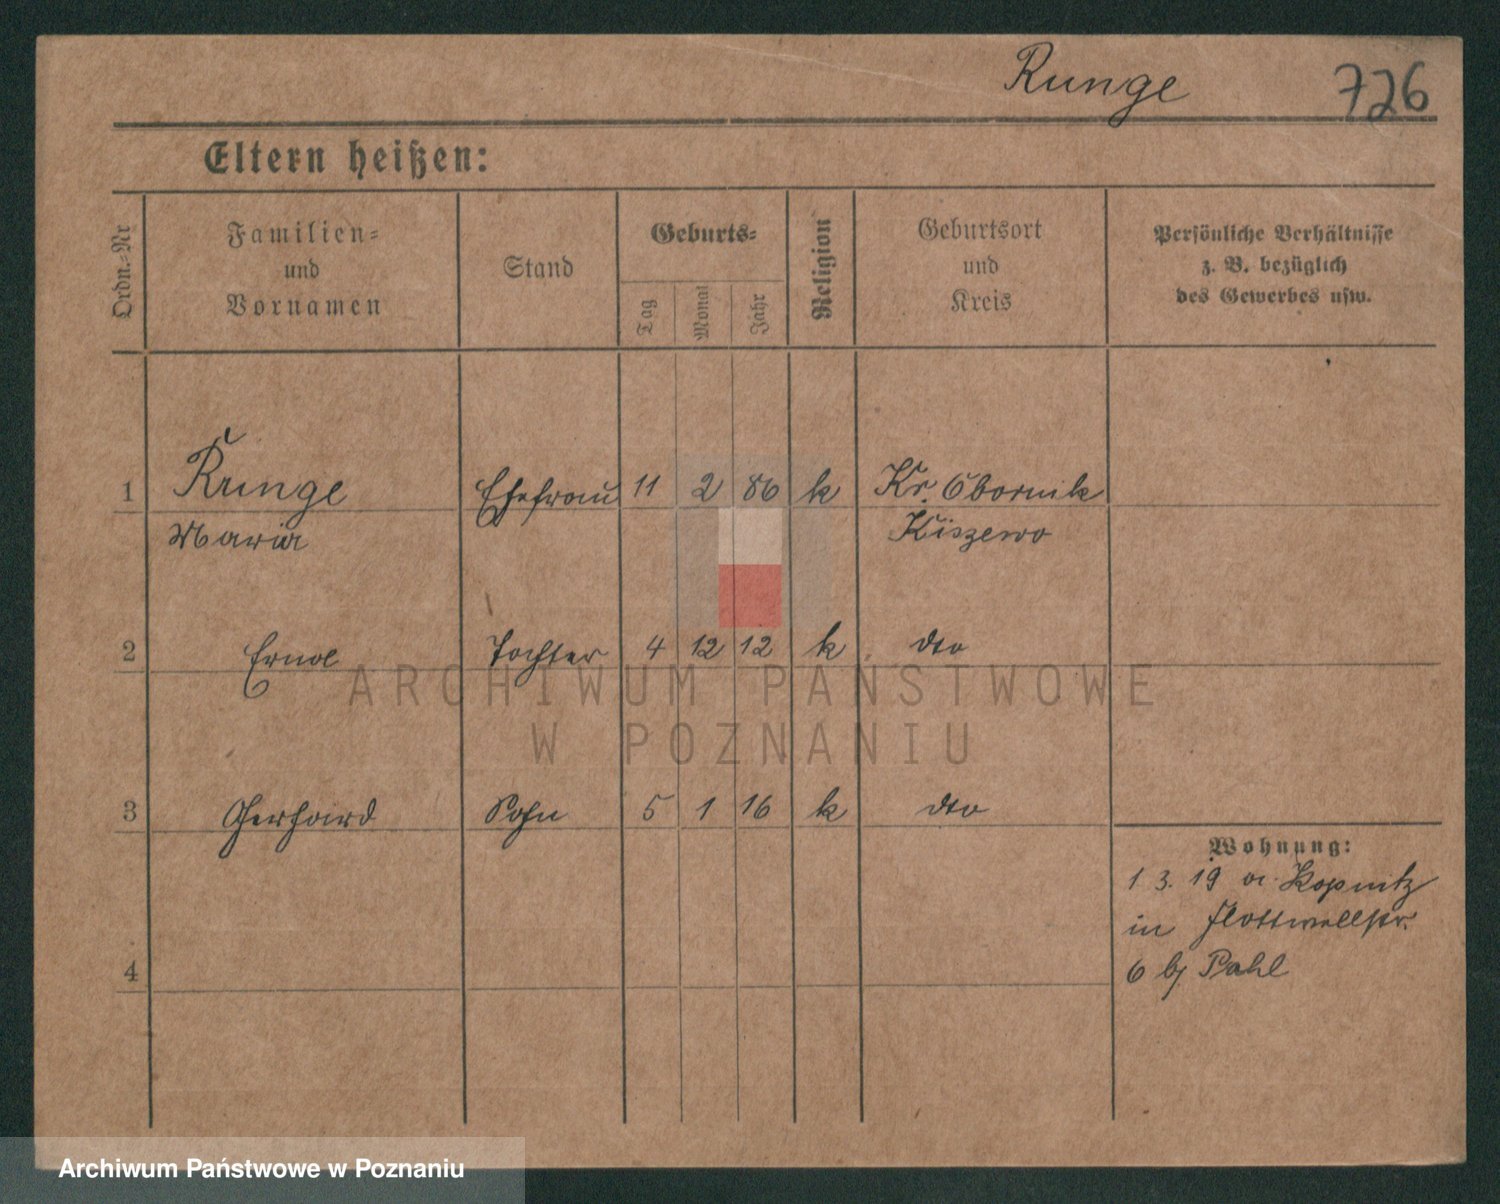 Runge 726
Eltern heißen:
Ordn.-Nr
Familien-
und
Vornamen
Stand
Geburts-
Tag
Monat
Jahr
Religion
Geburtsort
und
Kreis
Persönliche Verhältnisse
z. B. bezüglich
des Gewerbes usw.
1 Runge Ehefrau 11 2 86 k Kr. Obornik
Maria Kiszewo
2 Tochter 4 12 12 k dto
3 Gerhard Sohn 5 1 16 k dto
4
Wohnung:
1 3. 19 a. Kopnitz
in Flottwellstr.
6 bj Pahl
ARCHIWUM PAŃSTWOWE
W POZNANIU
Archiwum Państwowe w Poznaniu